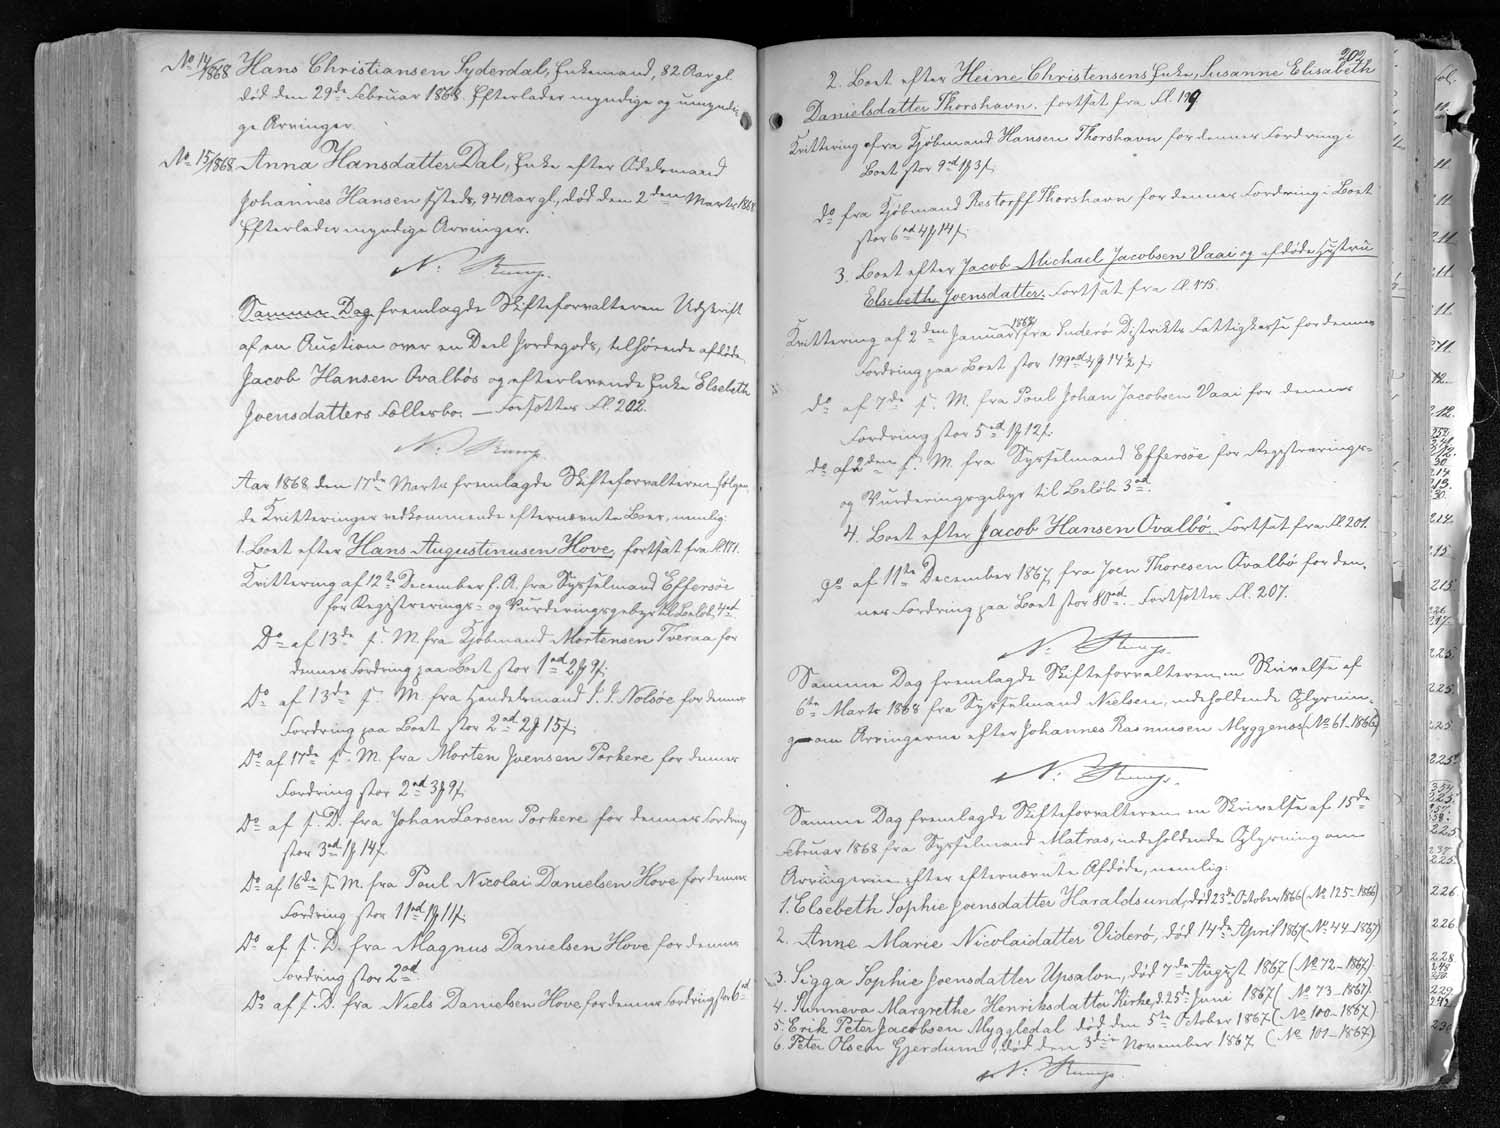 No 14/1868 Hans Christiansen Syderdal, Enkemand, 82 Aar gl.
død den 29de Februar 1868. Efterlader myndige og umyndi-
ge Arvinger.
No 15/1868 Anna Hansdatter Dal, Enke efter Odelsmand
Johannes Hansen systeds, 94 Aar gl., død den 2den Marts 1868
Efterlader myndige Arvinger.
N: Stump.
Samme Dag fremlagde Skifteforvalteren Udskrift
af en Auction over en Deel Jordegods, tilhørende afdøde
Jacob Hansen Ovalbøs og efterlevende Enke Elsebeth
Joensdatters Fællesbo. — Forsættes Fl. 202.
N: Stump.
Aar 1868 den 17de Marts fremlagde Skifteforvalteren følgen-
de Kvitteringer vedkommende efternævnte Boer, nemlig:
1. Boet efter Hans Augustinusen Hove, fortsat fra Fl. 171.
Kvittering af 12te December f. A. fra Sysselmand Effersøe
for Registrerings- og Vurderingsgebyr til Beløb 4rd
Do af 13de s. M. fra Kjøbmand Mortensen Tveraa for
dennes Fordring paa Boet stor 1rd 2ß 9f.
Do af 13de s. M. fra Handelsmand J. J. Nolsøe for dennes
Fordring paa Boet stor 2rd 2ß 15f.
Do af 17de s. M. fra Morten Joensen Porkere for dennes
Fordring stor 2rd 3ß 9f.
Do af s. D. fra Johan Larsen Porkere for dennes Fordring
stor 3rd 1ß 14f.
Do af 16de s. M. fra Poul Nicolai Danielsen Hove for dennes
Fordring stor 11rd 1ß 11f.
Do af s. D. fra Magnus Danielsen Hove for dennes
Fordring stor 2rd
Do af s. D. fra Niels Danielsen Hove for dennes Fordring stor 6rd
202
2. Boet efter Heine Christensens Enke, Susanne Elisabeth
Danielsdatter Thorshavn. fortsat fra Fl. 199
Kvittering fra Kjøbmand Hansen Thorshavn for dennes Fordring i
Boet stor 9rd 1ß 3f.
do fra Kjøbmand Restorff Thorshavn for dennes Fordring i Boet
stor 6rd 4ß 14f.
3. Boet efter Jacob Michael Jacobsen Vaai og afdøde Hystru
Elsebeth Joensdatter. Fortsat fra Fl. 175.
Kvittering af 2den Januar 1868 fra Suderø Distrikts Fattigkasse for dennes
Fordring paa Boet stor 199rd 4ß 14½ f.
do af 7de s. M. fra Poul Johan Jacobsen Vaai for dennes
Fordring stor 5rd 1ß 12f.
do af 2den s. M. fra Sysselmand Effersøe for Registrerings-
og Vurderingsgebyr til Beløb 3rd.
4. Boet efter Jacob Hansen Ovalbø. Fortsat fra Fl. 201.
do af 11te December 1867, fra Joen Thoresen Ovalbø for den-
nes Fordring paa Boet stor 80rd. Fortsættes Fl. 207.
N: Stump.
Samme Dag fremlagde Skifteforvalteren en Skrivelse af
6te Marts 1868 fra Sysselmand Nielsen, indeholdende Oplysnin-
g om Arvingerne efter Johannes Rasmusen Myggenæs (No 61-1866)
N: Stump.
Samme Dag fremlagde Skifteforvalteren en Skrivelse af 15de
Februar 1868 fra Sysselmand Matras, indeholdende Oplysning om
Arvingerne efter efternævnte Afdøde, nemlig:
1. Elsebeth Sophie Joensdatter Haraldsund, død 23de October 1866 (No 125-1866)
2. Anne Marie Nicolaidatter Viderø, død 14de April 1867 (No 44-1867)
3. Sigga Sophie Joensdatter Upsalon, død 7de August 1867 (No 72-1867)
4. Sunneva Margrethe Henriksdatter Kirke, d. 25de Juni 1867 (No 73-1867)
5. Erik Peter Jacobsen Myggledal død den 5te October 1867 (No 100-1867)
6. Peter Olsen Gjerdum, død den 3die November 1867 (No 101-1867)
N: Stump.